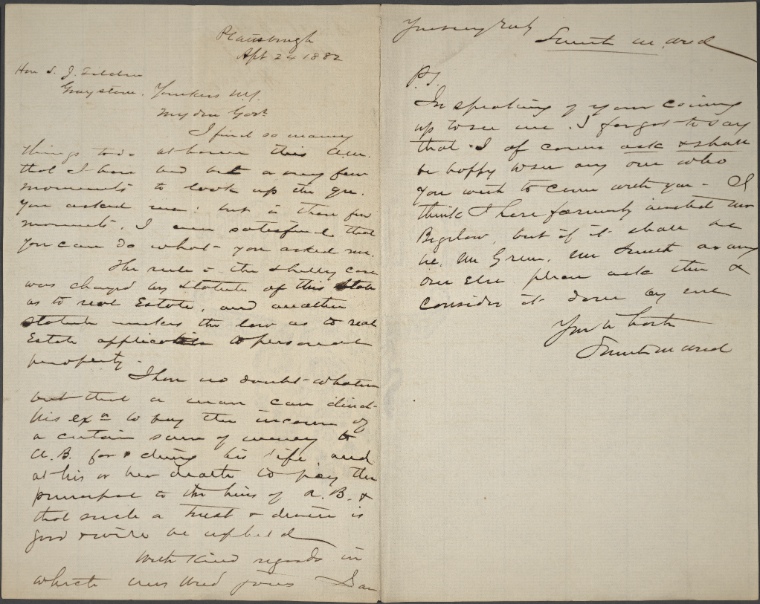 Plattsburgh
Apl 24 1882
Hon S. J. Tilden
Graystone. Yonkers NY.
My dear Govr
I find so many
things to do at home this
that I have had but a very few
moments to look up the qu.
you asked me: but in those few
moments. I am satisfied that
you can do what you asked me.
The rule in the Shelley case
was changed by statute of this State
as to real Estate, and another
statute makes the law as to real
Estate applicable to personal
property.
I have no doubt whatever
but that a man can direct
his exr to pay the income of
a certain sum of money to
A. B. for & during his life and
at his or her death to pay the
principal to the heirs of A. B. &
that such a trust & devise is
good & will be upheld
With kind regards in
which Mrs Weed joins I am
Yours very truly
Smith M Weed
P.S.
In speaking of your coming
up to see me. I forgot to say
that I of course ask & shall
be happy to see any one who
you wish to come with you - I
think I have formerly invited Mr
Bigelow, but if it shall be
he, Mr Green, Mr Smith or any
one else please ask them &
consider it done by me
Yours truly
Smith M Weed